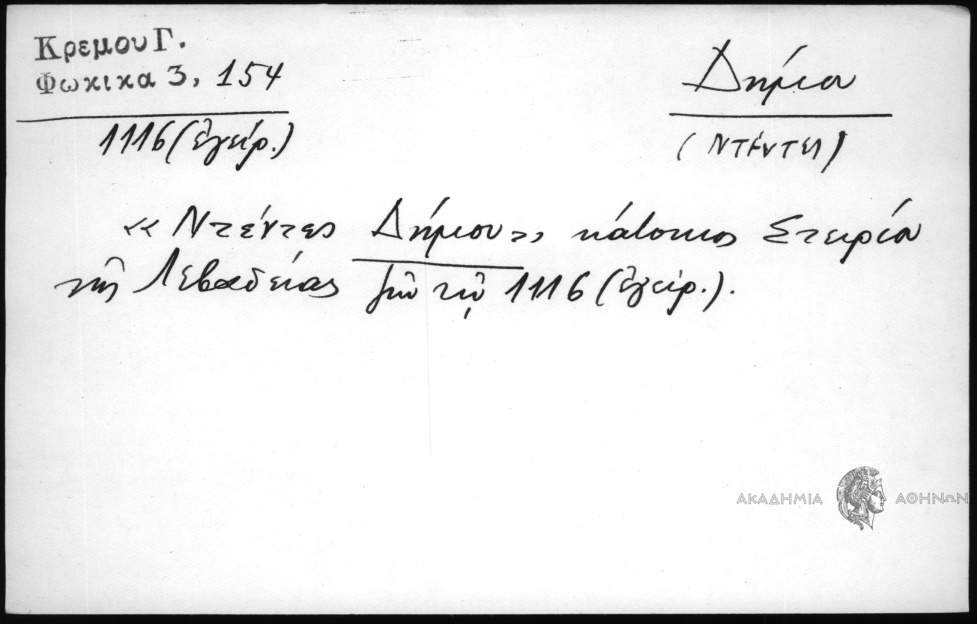 Κρεμου Γ.
Φωκικα 3, 154
1116 (ἐγείρ.)
Δήμου
(ΝΤΕΝΤΕΣ)
«Ντέντες Δήμου», κάτοικος Στειρίου
τῆς Λεβαδείας ἐν τῷ 1116 (ἐγείρ.).
ΑΚΑΔΗΜΙΑ ΑΘΗΝΩΝ